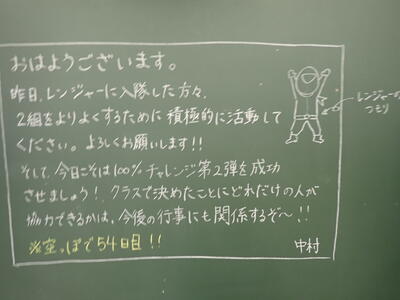 おはようございます。
昨日、レンジャーに入隊した方々、
2組をよりよくするために積極的に活動して
ください。よろしくお願いします!!
そして、今日こそは100%チャレンジ第2弾を成功
させましょう! クラスで決めたことにどれだけの人が
協力できるかは、今後の行事にも関係するぞ〜!!
※空っぽで54日目!!
中村
レンジャーの
つもり